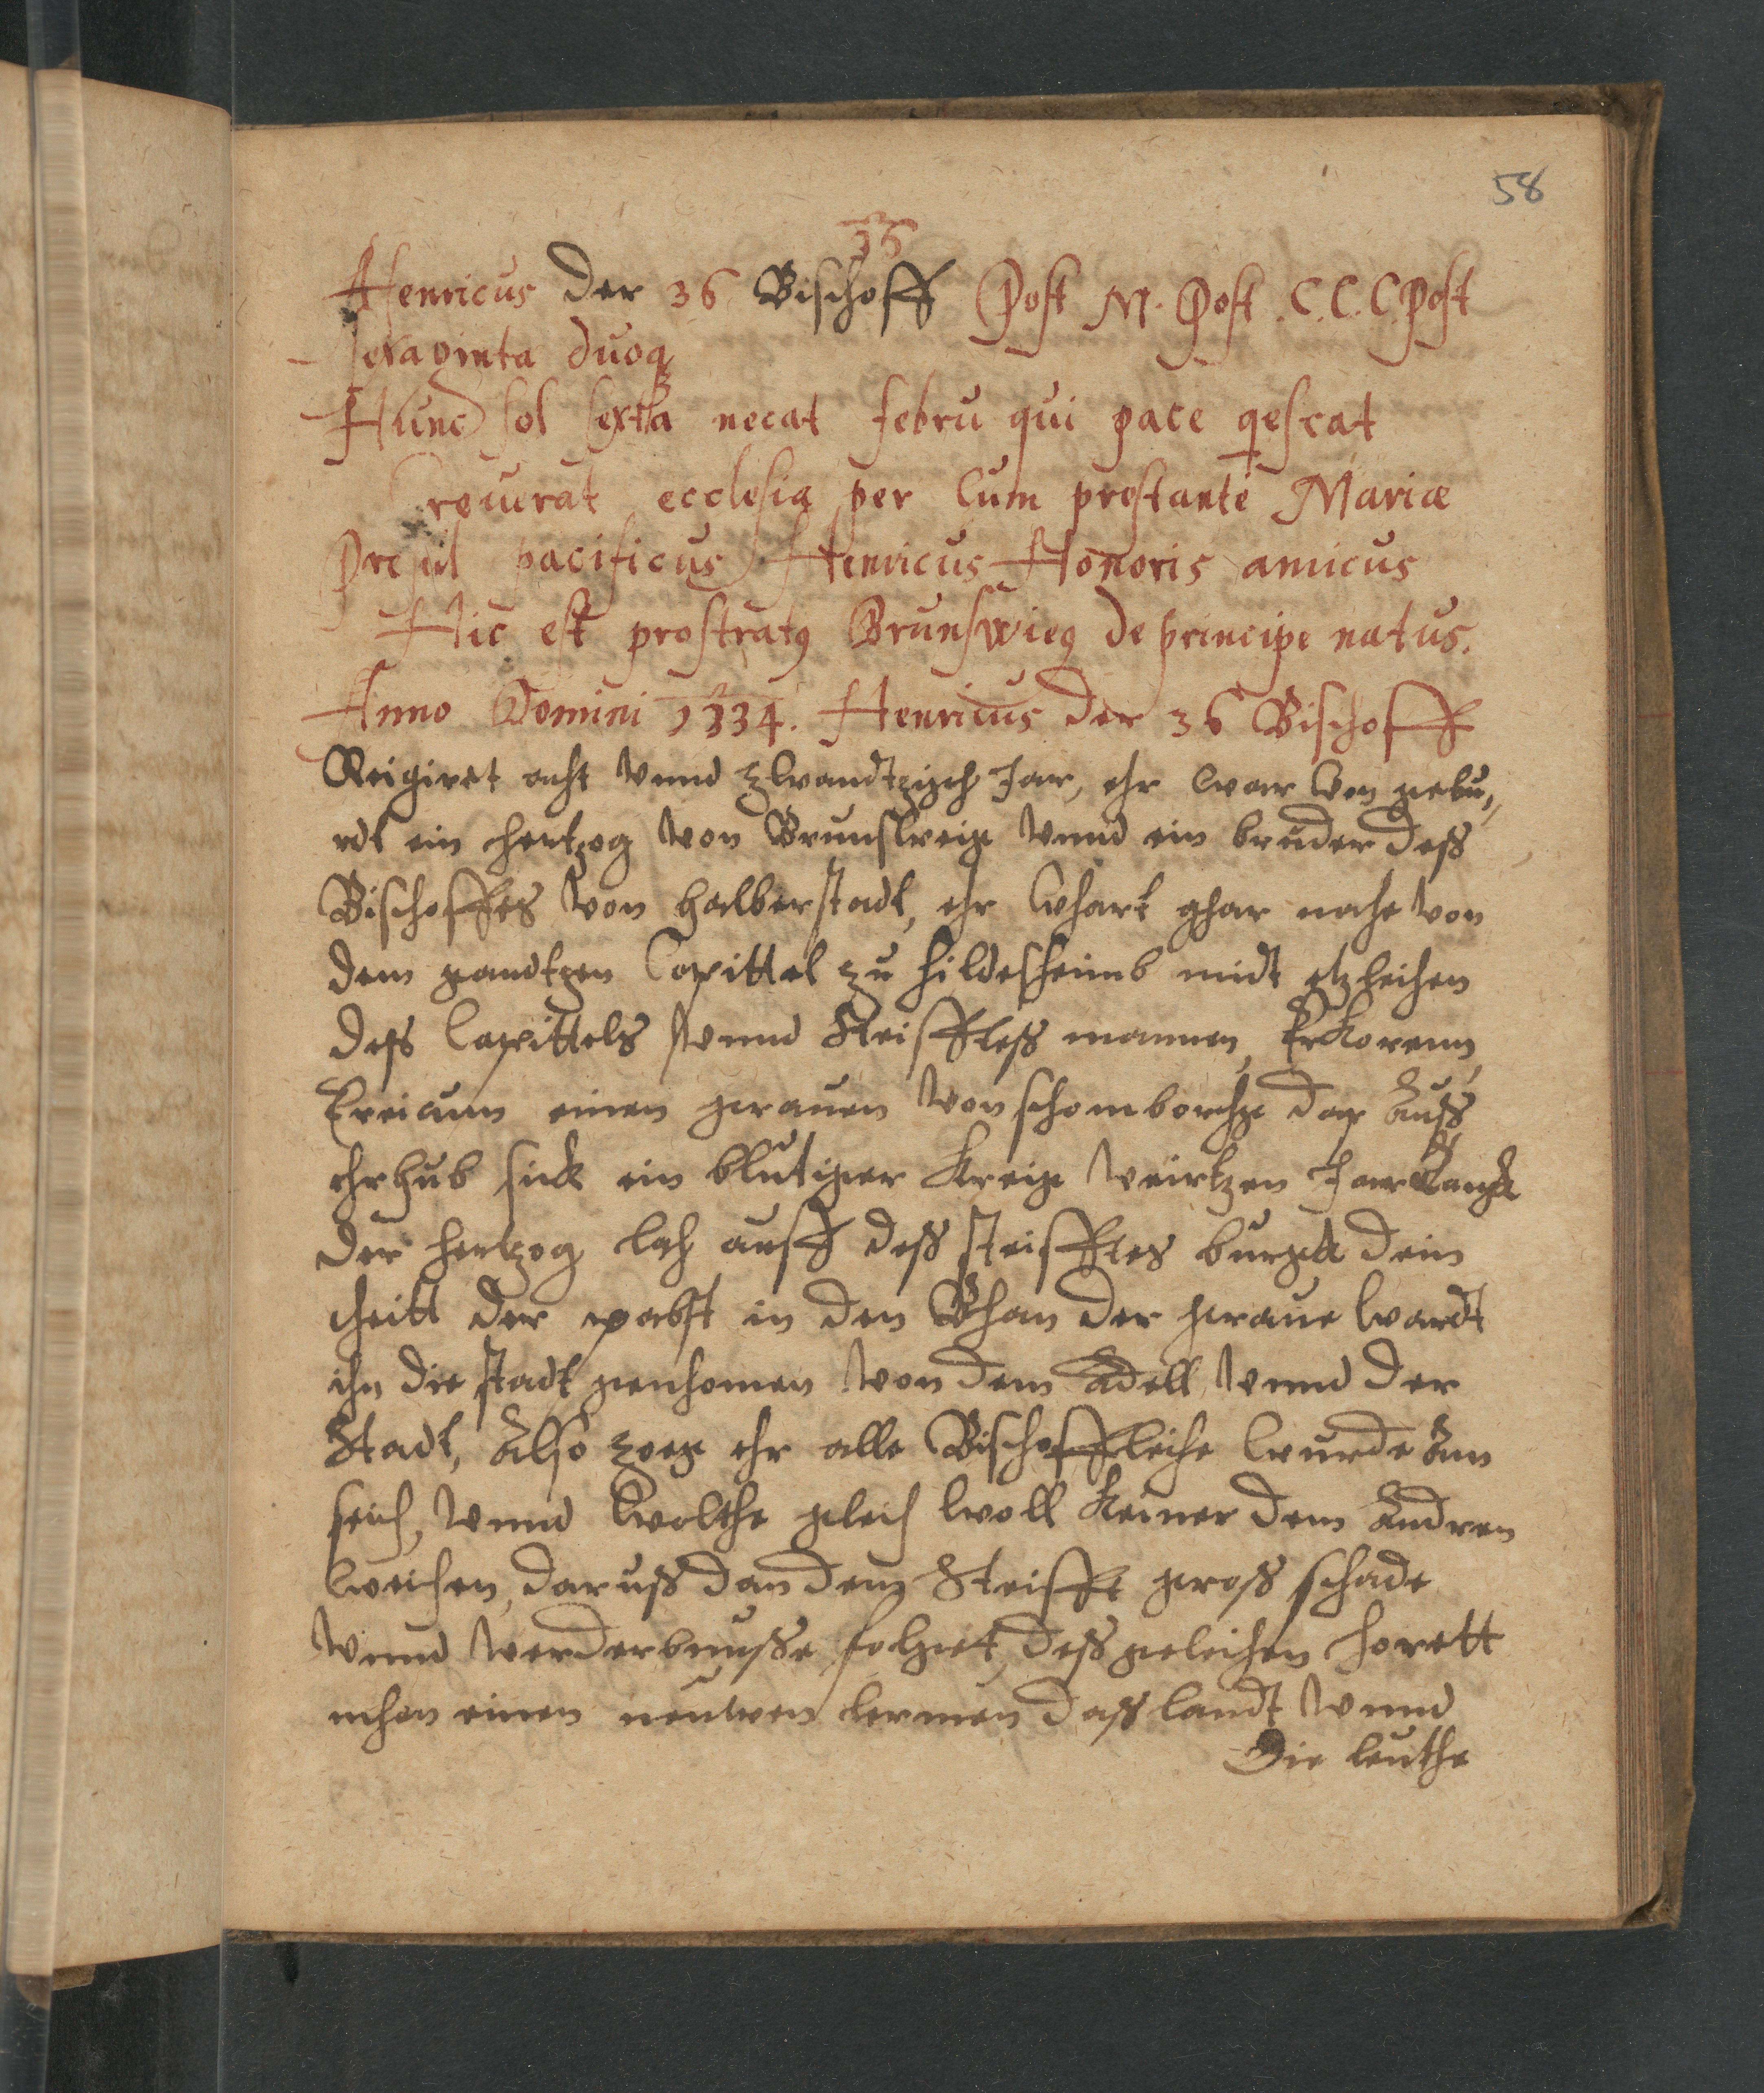 58
36
Henricus der 36 Bischoff Post M. Post .C.C.C. Post
sexaginta duoq
Hunc sol sexta necat febru qui pace qescat
Creuerat ecclesia per Cum prestante Mariæ
Presul pacificus Henricus Honoris amicus
Hic est prostratq Brunswieg de principe natus.
Anno Domini 1334. Henricus der 36 Bischoff
Reigiret acht vnnd zwandtzigh Jar, ehr war von gebu,,
rdt ein hertzog von Brunsweig vnnd ein bruder deß
Bischoffes von halberstadt, ehr whart ghar nahe von
dem gandtzen Capittel zu hildesheimb midt etzleichen
deß Capittels vnnd Steiffteß mannen, Erkorenn,
Ereicum einen grauen von schomborche dar Auß
ehrhub sick ein blutiger kreig veirtzen Jar Langk
der hertzog lach auff deß steifftes burgk dein
theitt der pabst in den Bhan der graue wardt
ihn die stadt genhomen von dem Adell vnnd der
Stadt, Also zoge ehr alle Bischoffleiche wurde Ann
seich, vnnd wolthe gleich woll keiner dem Andren
weichen, daruß dan dem Steifft groß schade
vnnd verderbnusse folget, deßgeleichen horett
mhen einen neuwen lermen daß landt vnnd
Die leuthe